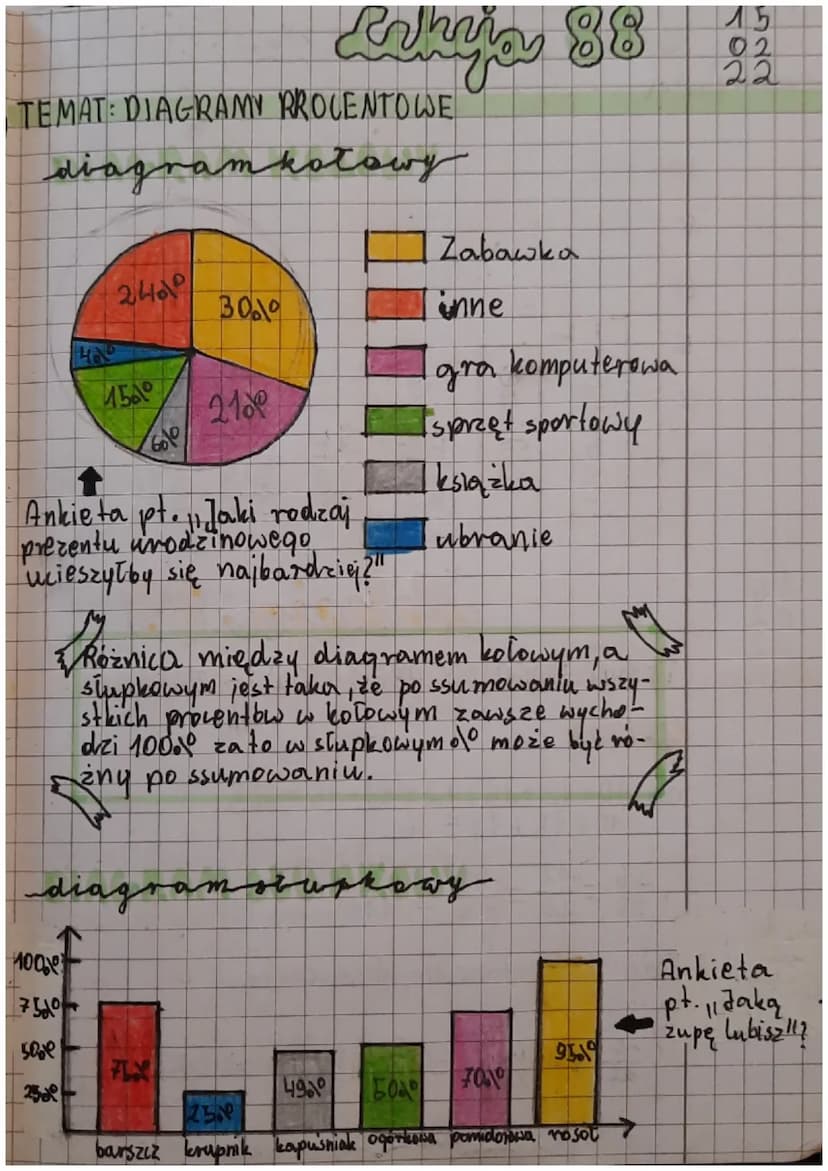 Lekcja 88
15
02
22
TEMAT: DIAGRAMY PROCENTOWE
diagram kołowy
24%
30%
4%
15%
6%
21%
Zabawka
inne
gra komputerowa
sprzęt sportowy
książka
ubranie
Ankieta pt. „Jaki rodzaj
prezentu urodzinowego
ucieszyłby się najbardziej?"
Różnica między diagramem kołowym, a
słupkowym jest taka, że po ssumowaniu wszy-
stkich procentów w kołowym zawsze wycho-
dzi 100% za to w słupkowym % może być ró-
żny po ssumowaniu.
diagram słupkowy
100%
75%
50%
25%
25%
49%
70%
95%
barszcz krupnik kapuśniak ogórkowa pomidorowa rosół
Ankieta
pt. „Jaką
zupę lubisz"?